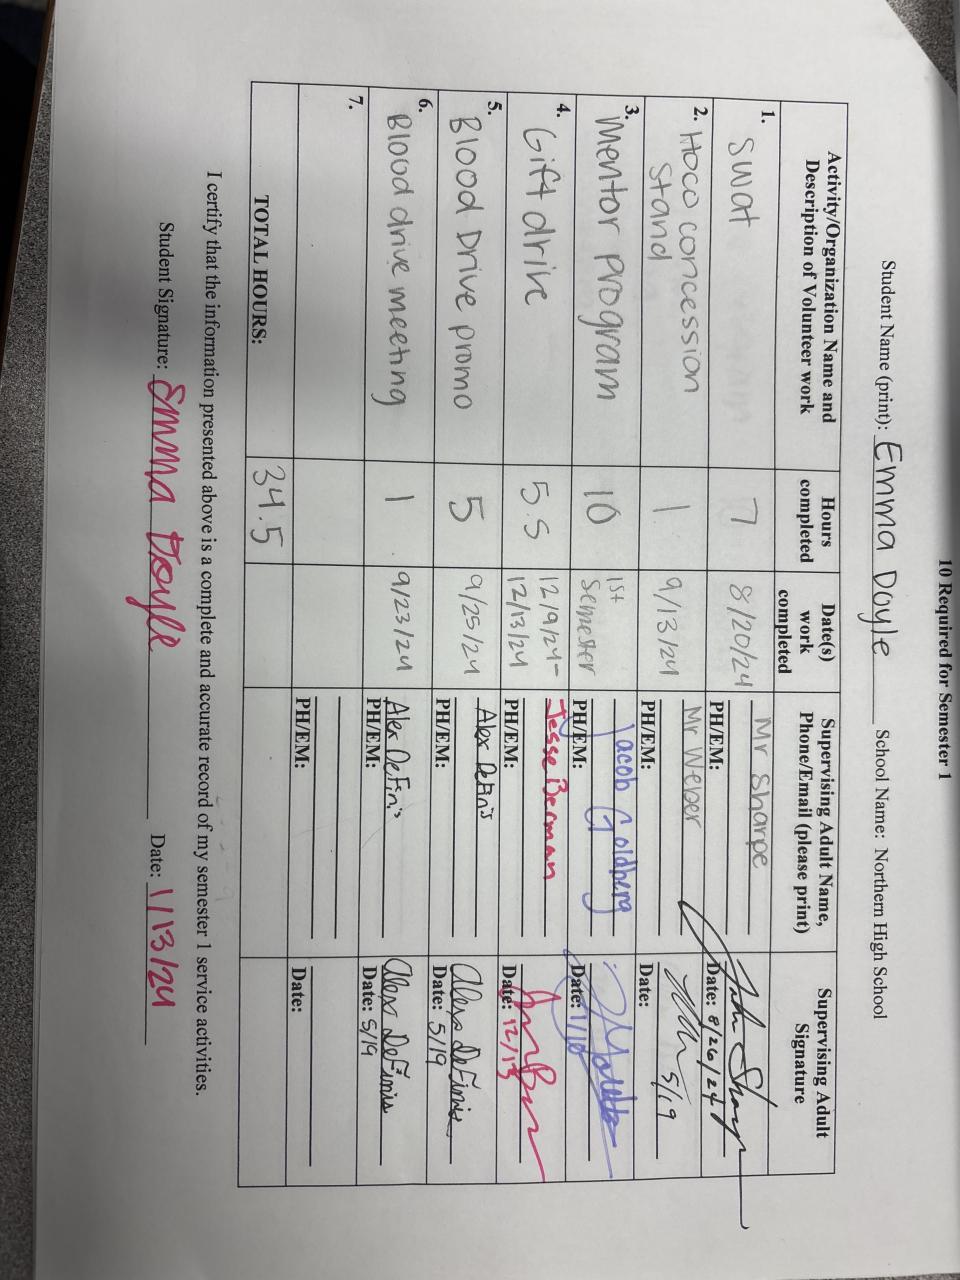 10 Required for Semester 1
Student Name (print): Emma Doyle School Name: Northern High School
Activity/Organization Name and Description of Volunteer work
Hours completed
Date(s) work completed
Supervising Adult Name, Phone/Email (please print)
Supervising Adult Signature
1. Swat
7
8/20/24
Mr Sharpe
PH/EM:
Date: 8/26/24
2. Hoco concession
Stand
1
9/13/24
Mr Weber
PH/EM:
Date: 5/19
3. Mentor program
10
1st
Semester
Jacob Goldberg
PH/EM:
Date: 1/10
4. Gift drive
5.5
12/9/24-
12/13/24
Jesse Berman
PH/EM:
Date: 12/13
5. Blood Drive promo
5
9/25/24
Alex Defin's
PH/EM:
Alex DeFinis
Date: 5/19
6. Blood drive meeting
1
9/23/24
Alex DeFin's
PH/EM:
Alex DeFinis
Date: 5/19
7.
PH/EM:
Date:
TOTAL HOURS:
34.5
I certify that the information presented above is a complete and accurate record of my semester 1 service activities.
Student Signature: Emma Doyle Date: 1/13/24